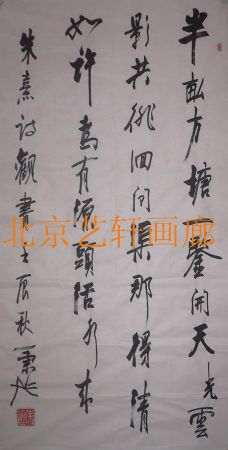 半畝方塘鑒開天光雲
影共徘徊問渠那得清
如許為有源頭活水來
朱熹詩觀書壬辰秋
北京艺轩画廊